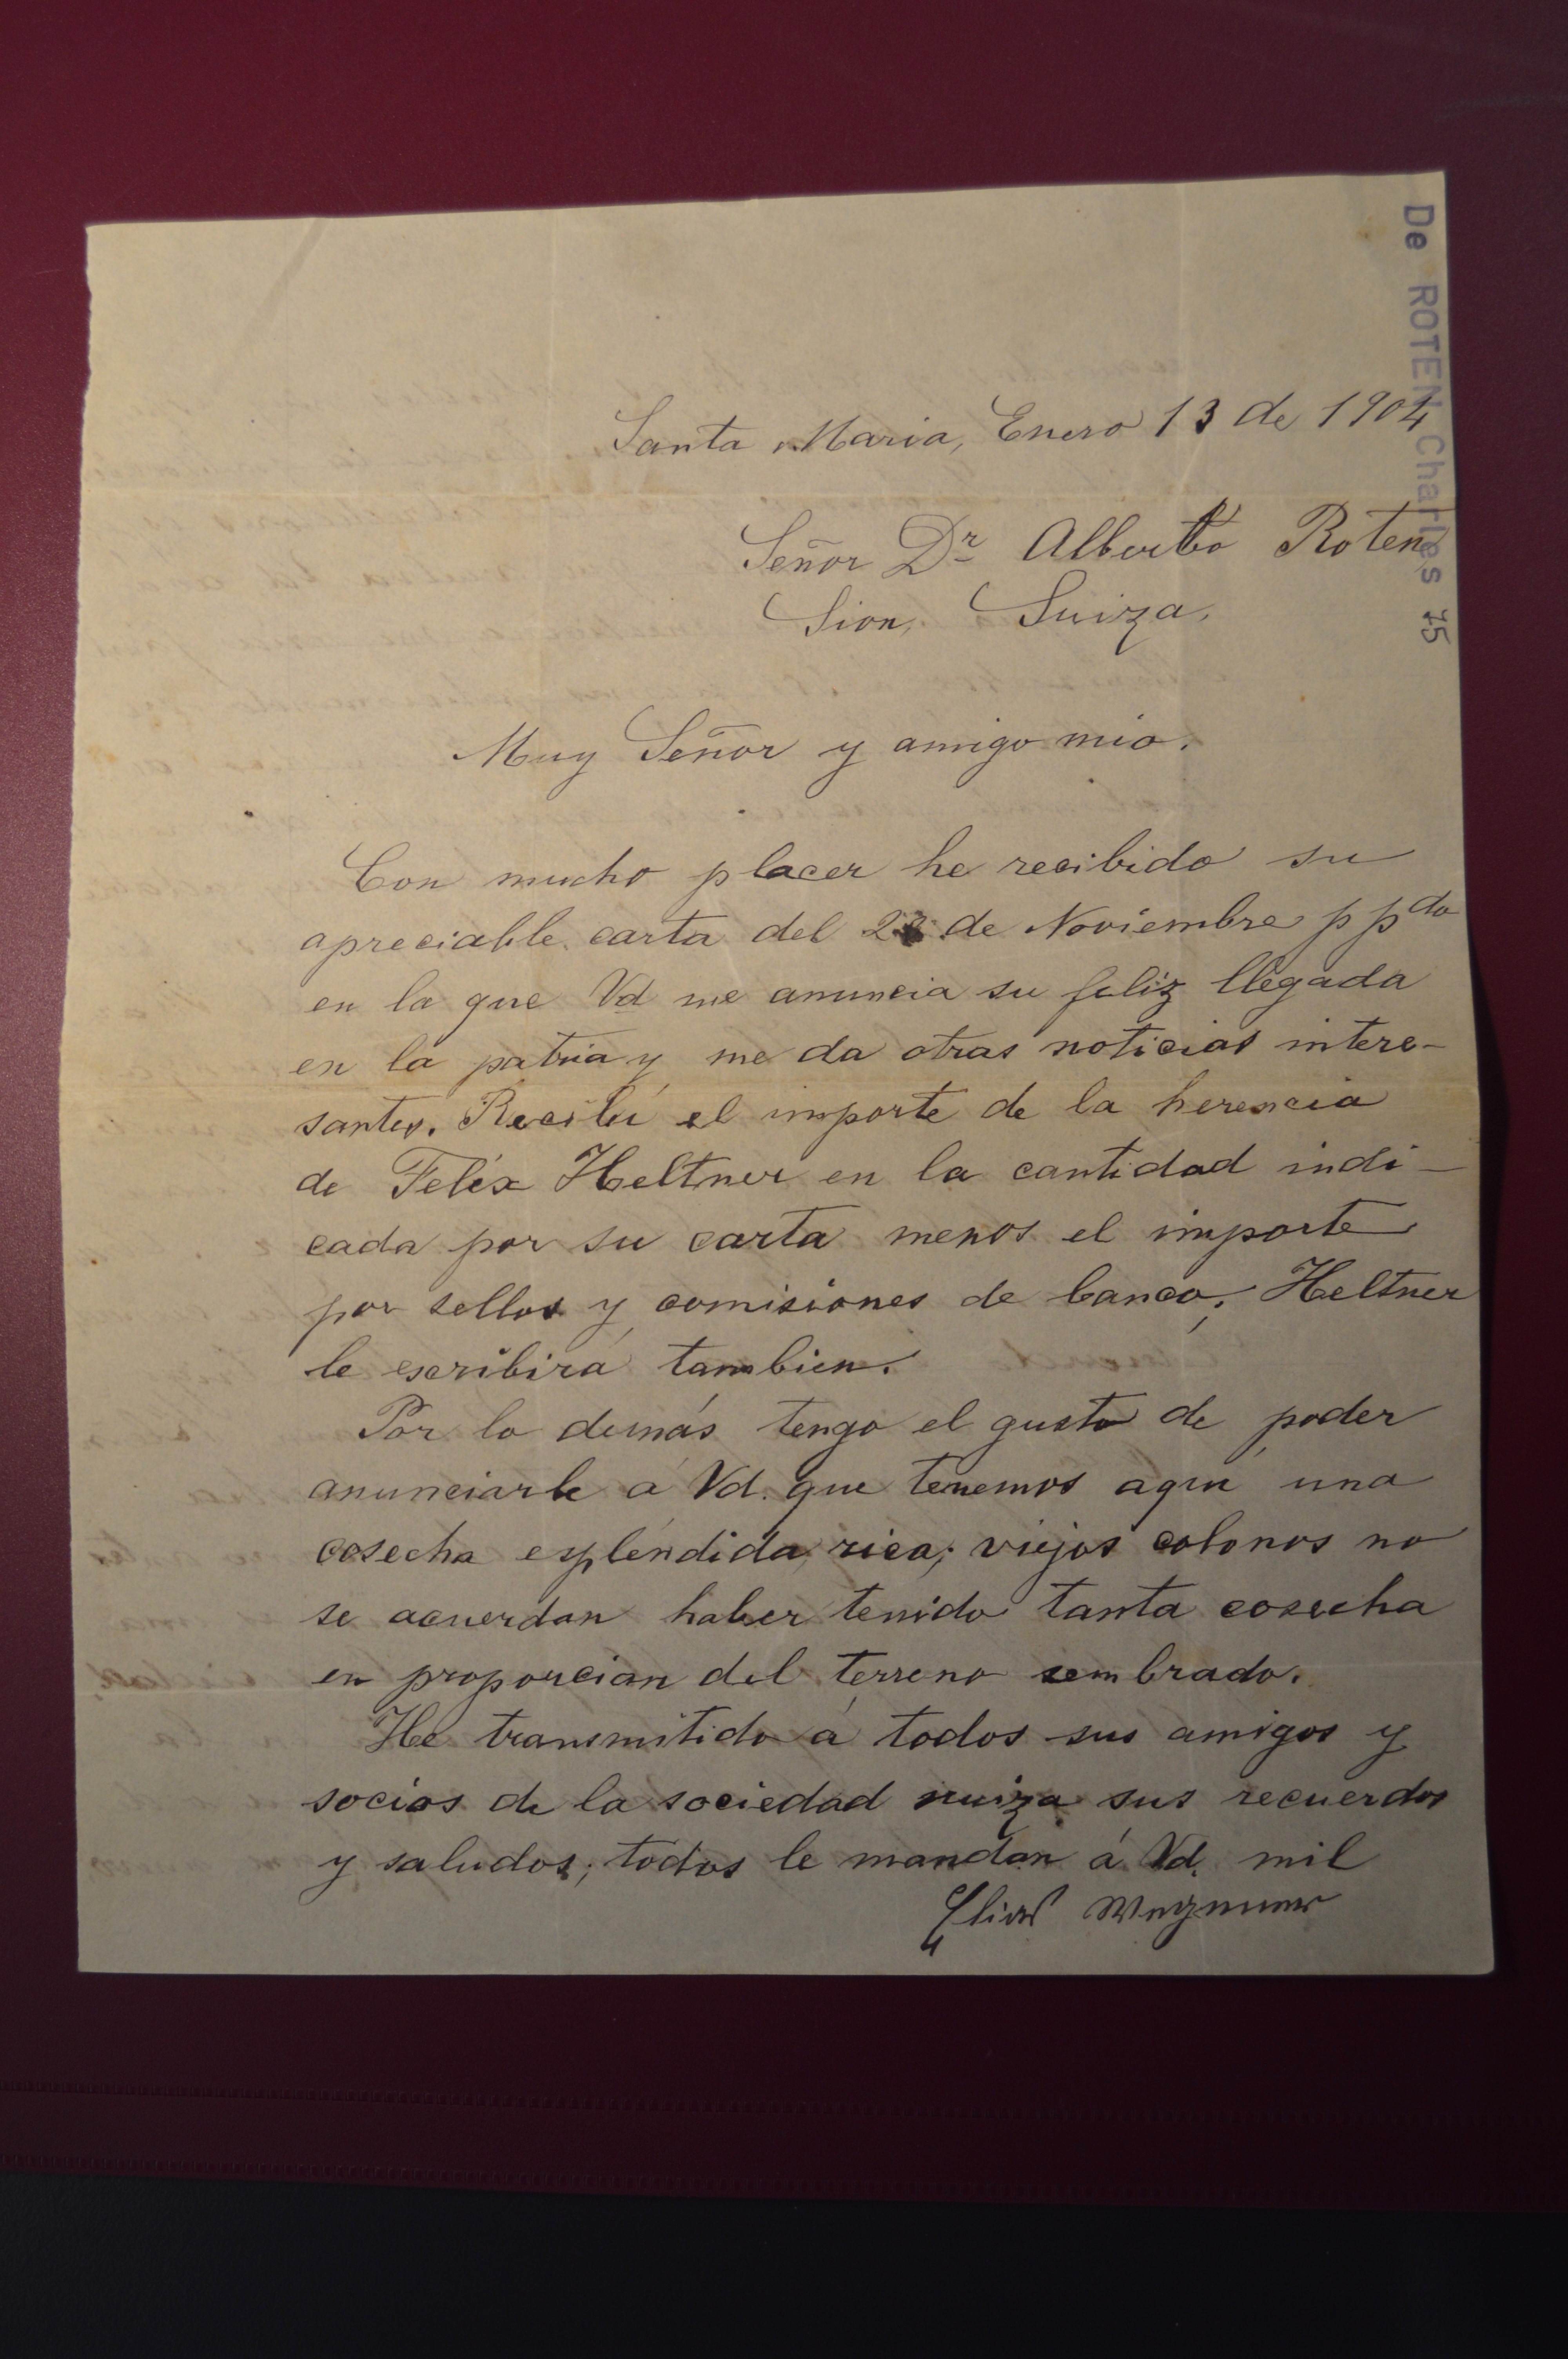 De ROTEN Charles 75
Santa Maria, Enero 13 de 1904
Señor Dr Alberto Roten
Sion, Suiza,
Muy Señor y amigo mio.
Con mucho placer he recibido su
apreciable carta del de Noviembre p pdo
en la que Vd me anuncia su feliz llegada
en la patria y me da otras noticias intere-
santes. Recibí el importe de la herencia
de Felix Heltner en la cantidad indi-
cada por su carta menos el importe
por sellos y comisiones de banco; Heltner
le escribirá tambien.
Por lo demás tengo el gusto de poder
anunciarle á Vd. que tenemos aquí una
cosecha espléndida, rica; viejos colonos no
se acuerdan haber tenido tanta cosecha
en proporcian del terreno sembrado.
He transmitido á todos sus amigos y
socios de la sociedad suiza sus recuerdos
y saludos; todos le mandan á Vd. mil
Elias